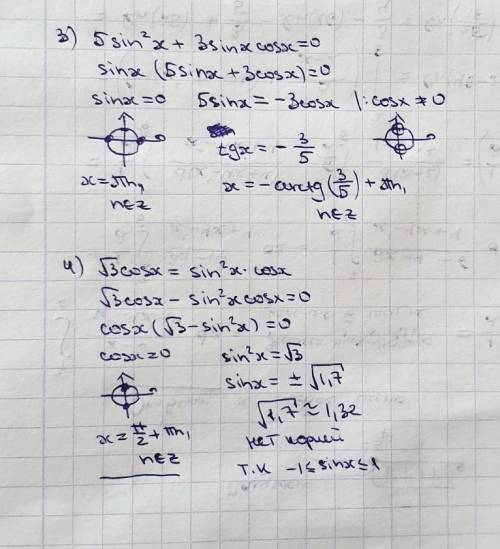 3) 5 sin²x + 3 sinx cosx = 0
sinx (5 sinx + 3 cosx) = 0
sinx = 0 5 sinx = -3 cosx |: cosx ≠ 0
tgx = - 3/5
x = πn, x = -arctg (3/5) + πn,
n∈Z n∈Z
4) √3 cosx = sin²x · cosx
√3 cosx - sin²x cosx = 0
cosx (√3 - sin²x) = 0
cosx = 0 sin²x = √3
sinx = ± √1,7
√1,7 ≈ 1,32
x = π/2 + πn, нет корней
n∈Z т.к -1 ≤ sinx ≤ 1